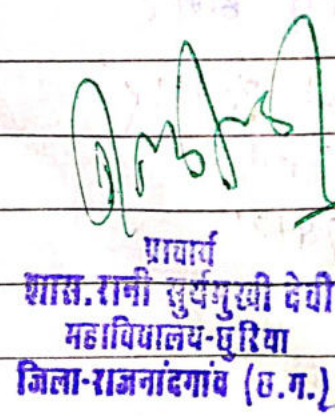 प्राचार्य
शास.रानी सुर्यमुखी देवी
महाविद्यालय-छुरिया
जिला-राजनांदगांव (छ.ग.)